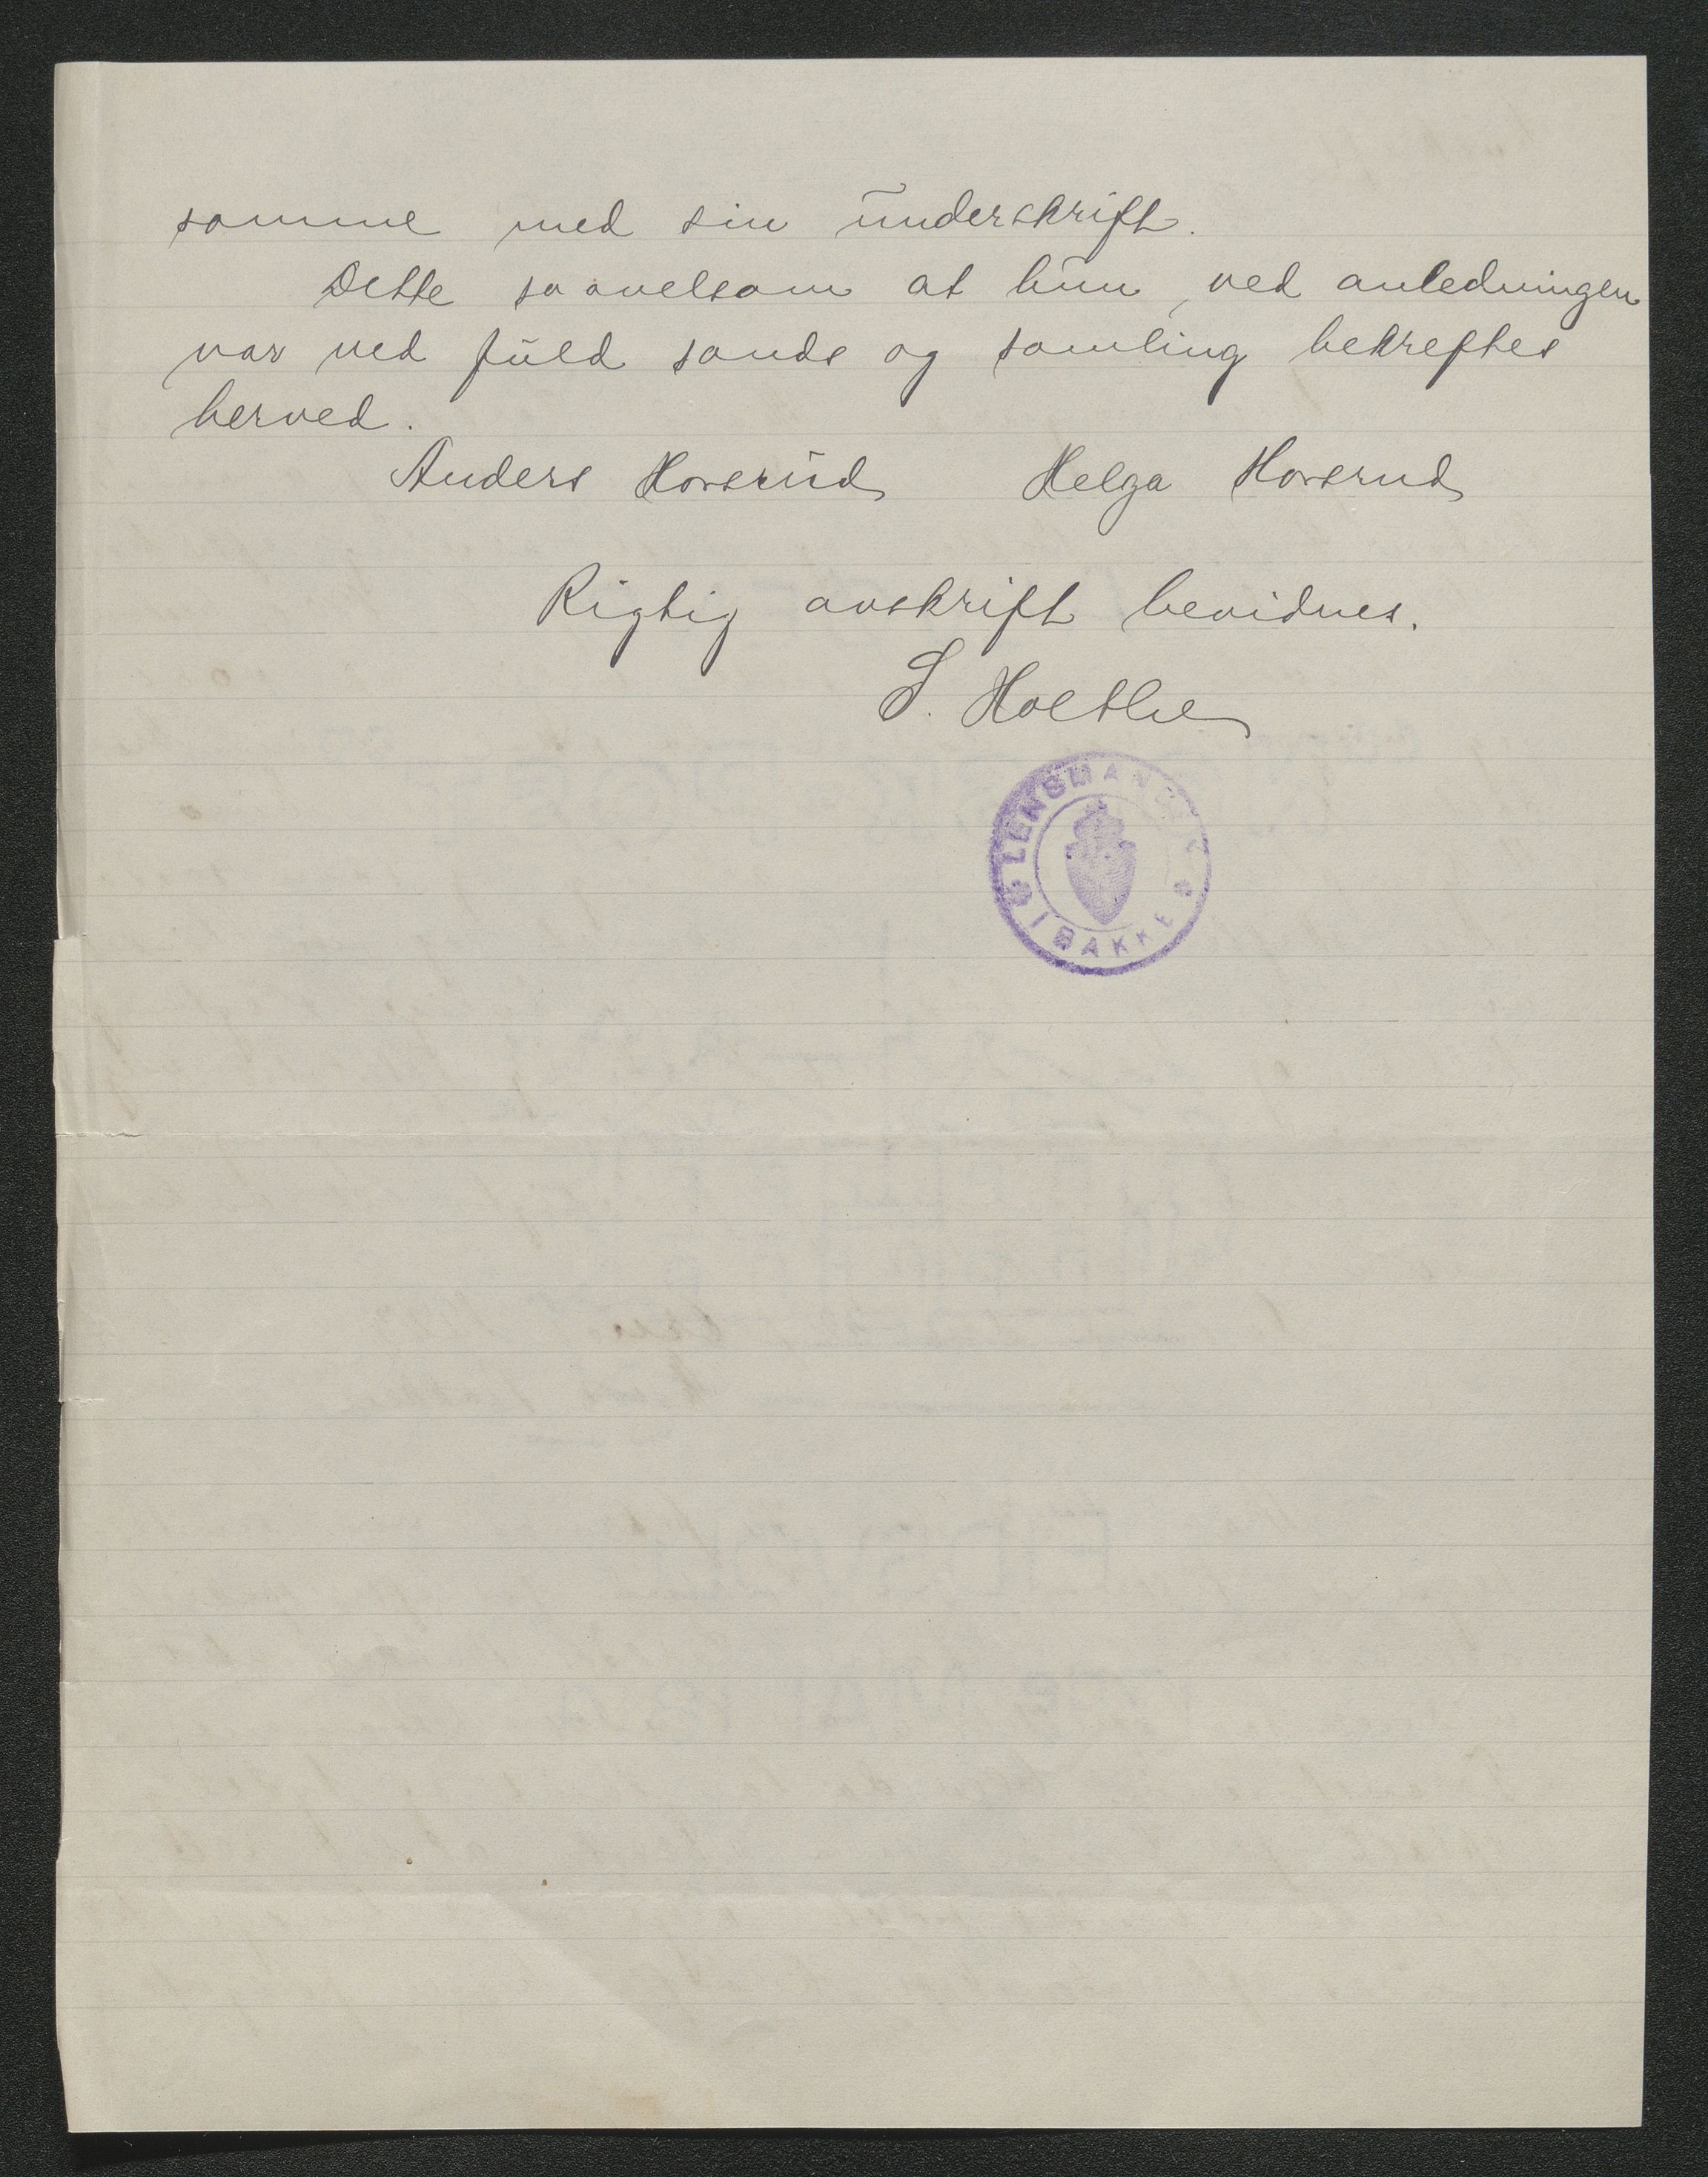 samme med sin underskrift.
Dette saavelsom at hun ved anledningen
var ved fuld sands og samling bekreftes
herved.
Anders Horsrud Helga Horsrud
Rigtig avskrift bevidnes.
S. Holthe
LENSMANDEN
I BAKKE